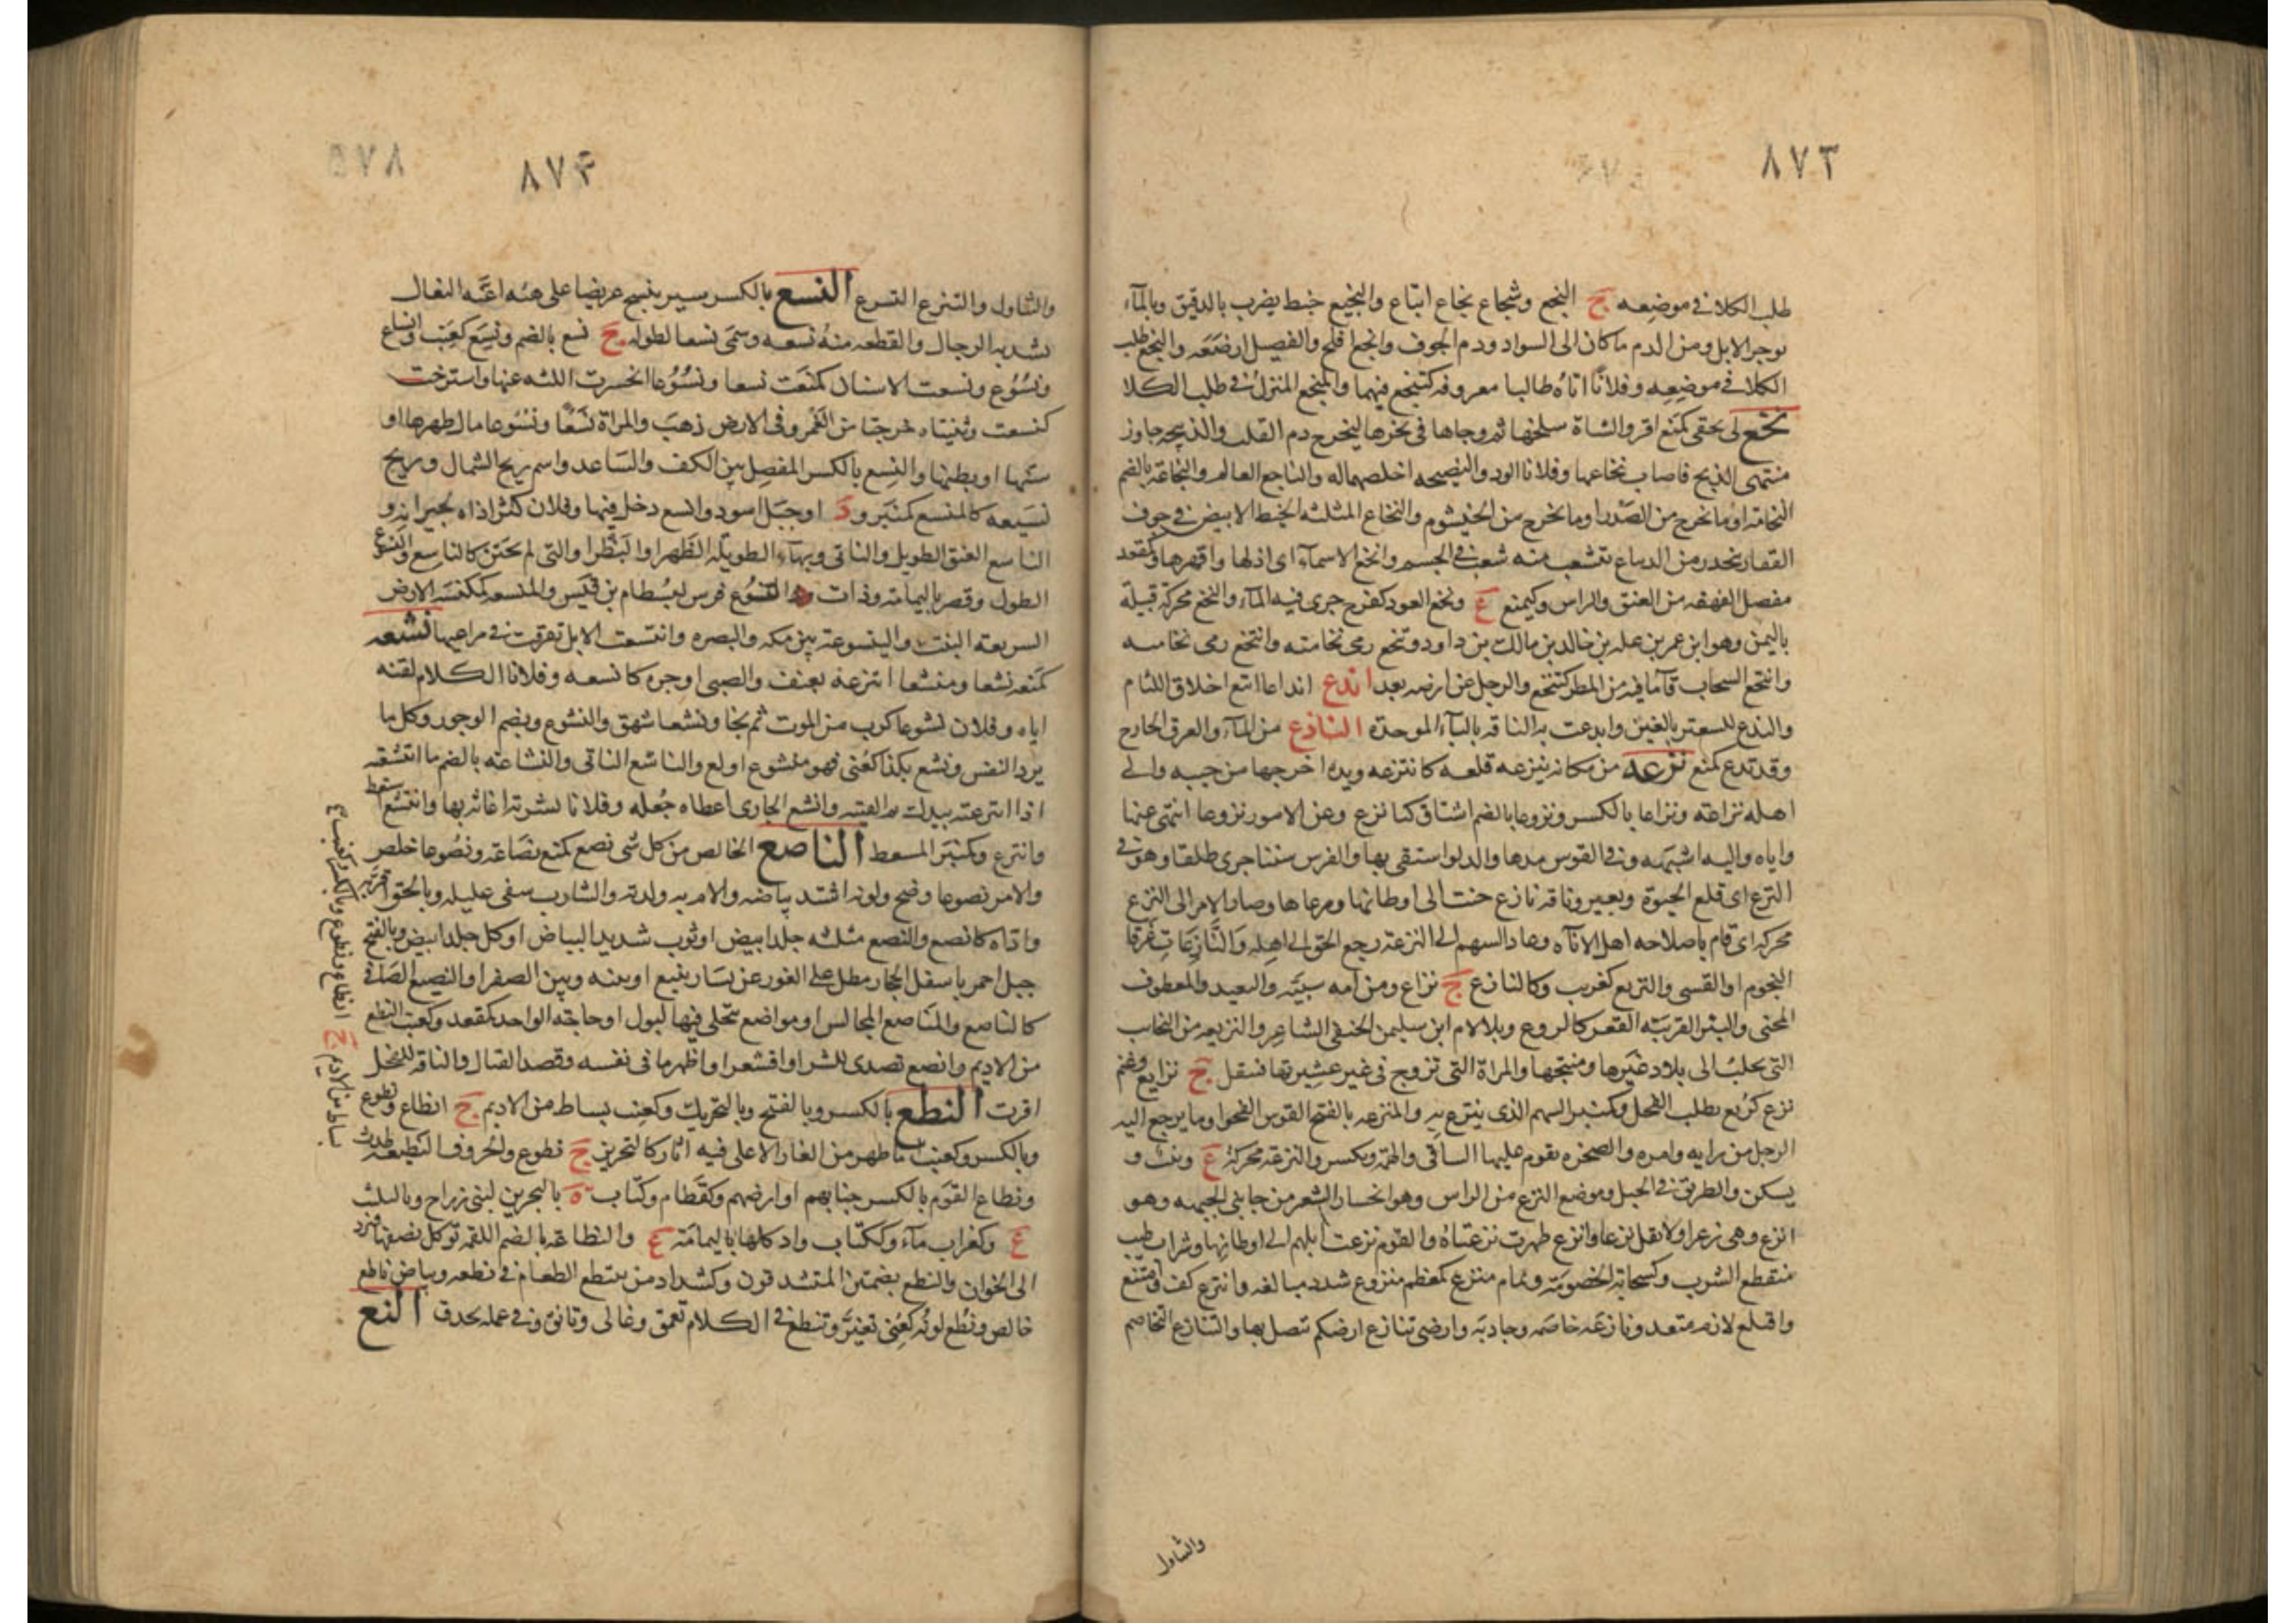 ٨٧٣
طلب الكلا فى موضعه ج النجع وشجاع نجاع اتباع والنجيع خبط يضرب بالدقيق وبالمآء
يوجر الابل ومن الدم ماكان الى السواد ودم الجوف وانجع افلح والفصيل ارضعه والنجع طلب
الكلا فى موضعه وفلانا اتاه طالبا معروفه كتنجع فيهما والمنتجع المنزل فى طلب الكلا
نخع لى بحقى كمنع اقر والشاة سلخها ثم وجاها فى نحرها ليخرج دم القلب والذبيحه جاوز
منتهى الذبح فاصاب نخاعها وفلانا الود والنصيحه اخلصهما له والناجع العالم والنخاعة بالضم
النخامة او ما يخرج من الصدر او ما يخرج من الخيشوم والنخاع المثلثه الخيط الابيض فى جوف
الفقار ينحدر من الدماغ تتشعب منه شعب فى الجسم وانخع الاسمآء اى اذلها واقهرها وكمقعد
مفصل الفهقه من العنق والراس وكيمنع ع ونخع العود كفرح جرى فيه المآء والنخع محركة قبيلة
باليمن وهو ابن عمر بن عله بن خالد بن مالك بن داود وتنخع رمى نخامته وانتخع رمى نخامته
وانتخع السحاب قآء ما فيه من المطر كتنخع والرجل عن ارضه بعد اندع انداعا اتبع اخلاق اللئام
والندع للسعتر بالغين وابدعت به الناقه بالبآء الموحدة الناذع من المآء والعرق الخارج
وقد نذع كمنع نزعه من مكانه ينزعه قلعه كانتزعه ويده اخرجها من جيبه والى
اهله نزاعة ونزاعا بالكسر ونزوعا بالضم اشتاق كنازع وعن الامور نزوعا انتهى عنها
واباه واليه اشبهه وفى القوس مدها والدلو استقى بها والفرس سننا جرى طلقا وهو فى
النزع اى قلع الحيوة وبعير وناقه نازع حنت الى اوطانها ومرعاها وصار الامر الى النزع
محركه اى قام باصلاحه اهل الاناة وعاد السهم الى النزعة رجع الحق الى اهله والنازعات غرقا
النجوم او القسى والنزيع كغريب وكالنازع ج نزاع ومن امه سبيه والبعيد والمعطوف
المحنى والبئر القريبة القعر كالنزوع وبلا لام ابن سليمن الحنفى الشاعر والنزيعه من النجائب
التى تجلب الى بلاد غيرها ومنتجها والمراة التى تزوج فى غير عشيرتها فتنقل ج نزايع وغنم
نزع كركع تطلب الفحل وكمنبر السهم الذى ينتزع به والمنزعه بالفتح القوس الفجوا وما يرجع اليه
الرجل من رايه وامره والصخره يقوم عليها الساقى والهمة ويكسر والنزعة محركة ع ونبت و
يسكن والطريق فى الجبل وموضع النزع من الراس وهو انحسار الشعر من جانبى الجبهه وهو
انزع وهى زعرا ولا تقل نزعا وانزع ظهرت نزعتاه والقوم نزعت ابلهم الى اوطانها وشراب طيب
منقطع الشرب وكسحابة الخصومة وثمام منزع كمعظم منزوع شدد مبالغه وانتزع كف وامتنع
واقتلع لازم متعد ونازعه خاصمه وجاذبه وارضى تنازع ارضكم تتصل بها والتنازع التخاصم
والتناول
٨٧٤
٥٧٨
والتناول والتنزع التسرع النسع بالكسر سير ينسج عريضا على هيئه اعنة النعال
تشد به الرحال والقطعه منه نسعه وسمى نسعا لطوله ج نسع بالضم ونسع كعنب وانساع
ونسوع ونسعت الاسنان كمنعت نسعا ونسوعا انحسرت اللثه عنها واسترخت
كنسعت وثنيتاه خرجتا من الغمر وفى الارض ذهب والمراة نسعا ونسوعا مال ظهرها او
سنها او بطنها والنسع بالكسر المفصل بين الكف والساعد واسم ريح الشمال وريح
نسيعه كالمنسع كمنبر ود او جبل اسود وانسع دخل فيها وفلان كثر اذاه لجيرانه و
الناسع العنق الطويل والناتى وبهآء الطويله الظهر او البظر او التى لم تختن كالناسع والنسوع
الطول وقصر باليمامة وذات النسوع فرس لبسطام بن قيس والمنسعه كمكنسه الارض
السريعة النبت والينسوعة بين مكه والبصره وانتسعت الابل تفرقت فى مراعيها نشعه
كمنعه نشعا ومنشعا انتزعه بعنف والصبى اوجره كانشعه وفلانا الكلام لقنه
اياه وفلان نشوعا كرب من الموت ثم نجا ونشعا شهق والنشوع ويضم الوجور وكل ما
يرد النفس ونشع بكذا كعنى فهو منشوع اولع والناشع الناتى والنشاعة بالضم ما انتشعه
اذا انتزعته بيدك ثم القيته وانشع الحازى اعطاه جعله وفلانا بشربة اغاثه بها وانتشع استعط
وانتزع وكمنبر المسعط الناصع الخالص من كل شى نصع كمنع نصاعة ونصوعا خلص
والامر نصوعا وضح ولونه اشتد بياضه والام به ولدته والشارب سفى غليله وبالحق اقر به
واداه كانصع والنصع مثلثه جلد ابيض او ثوب شديد البياض او كل جلد ابيض وبالفتح
جبل احمر باسفل الحجاز مطل على الغور عن يسار ينبع او بينه وبين الصفرا والنصيع الصافى
كالناصع والمناصع المجالس او مواضع يتخلى فيها لبول او حاجة الواحد كمقعد وكعنب النطع
من الاديم وانصع تصدى للشر او اقشعر او اظهر ما فى نفسه وقصد القتال والناقة للفحل
اقرت النطع بالكسر وبالفتح وبالتحريك وكعنب بساط من الاديم ج انطاع ونطوع
وبالكسر وكعنب ما ظهر من الغار الاعلى فيه اثار كالتحزيز ج نطوع والحروف النطيعه طدت
ونطاع القوم بالكسر جنابهم او ارضهم وكقطام وكتاب ة بالبحرين لبنى رزاح وبالتثليث
ع وكغراب مآء وككتاب واد كلاهما باليمامة ع والنطاعة بالضم اللقمه توكل نصفها فترد
الى الخوان والنطع بضمتين المتشدقون وكشداد من ينتطع الطعام فى نطعه وبياض ناطع
خالص ونطع لونه كعنى تغير وتنطع فى الكلام تعمق وغالى وتانق وفى عمله تحذق النع
بساط من الاديم ج انطاع ونطوع وبالكسر وكعنب